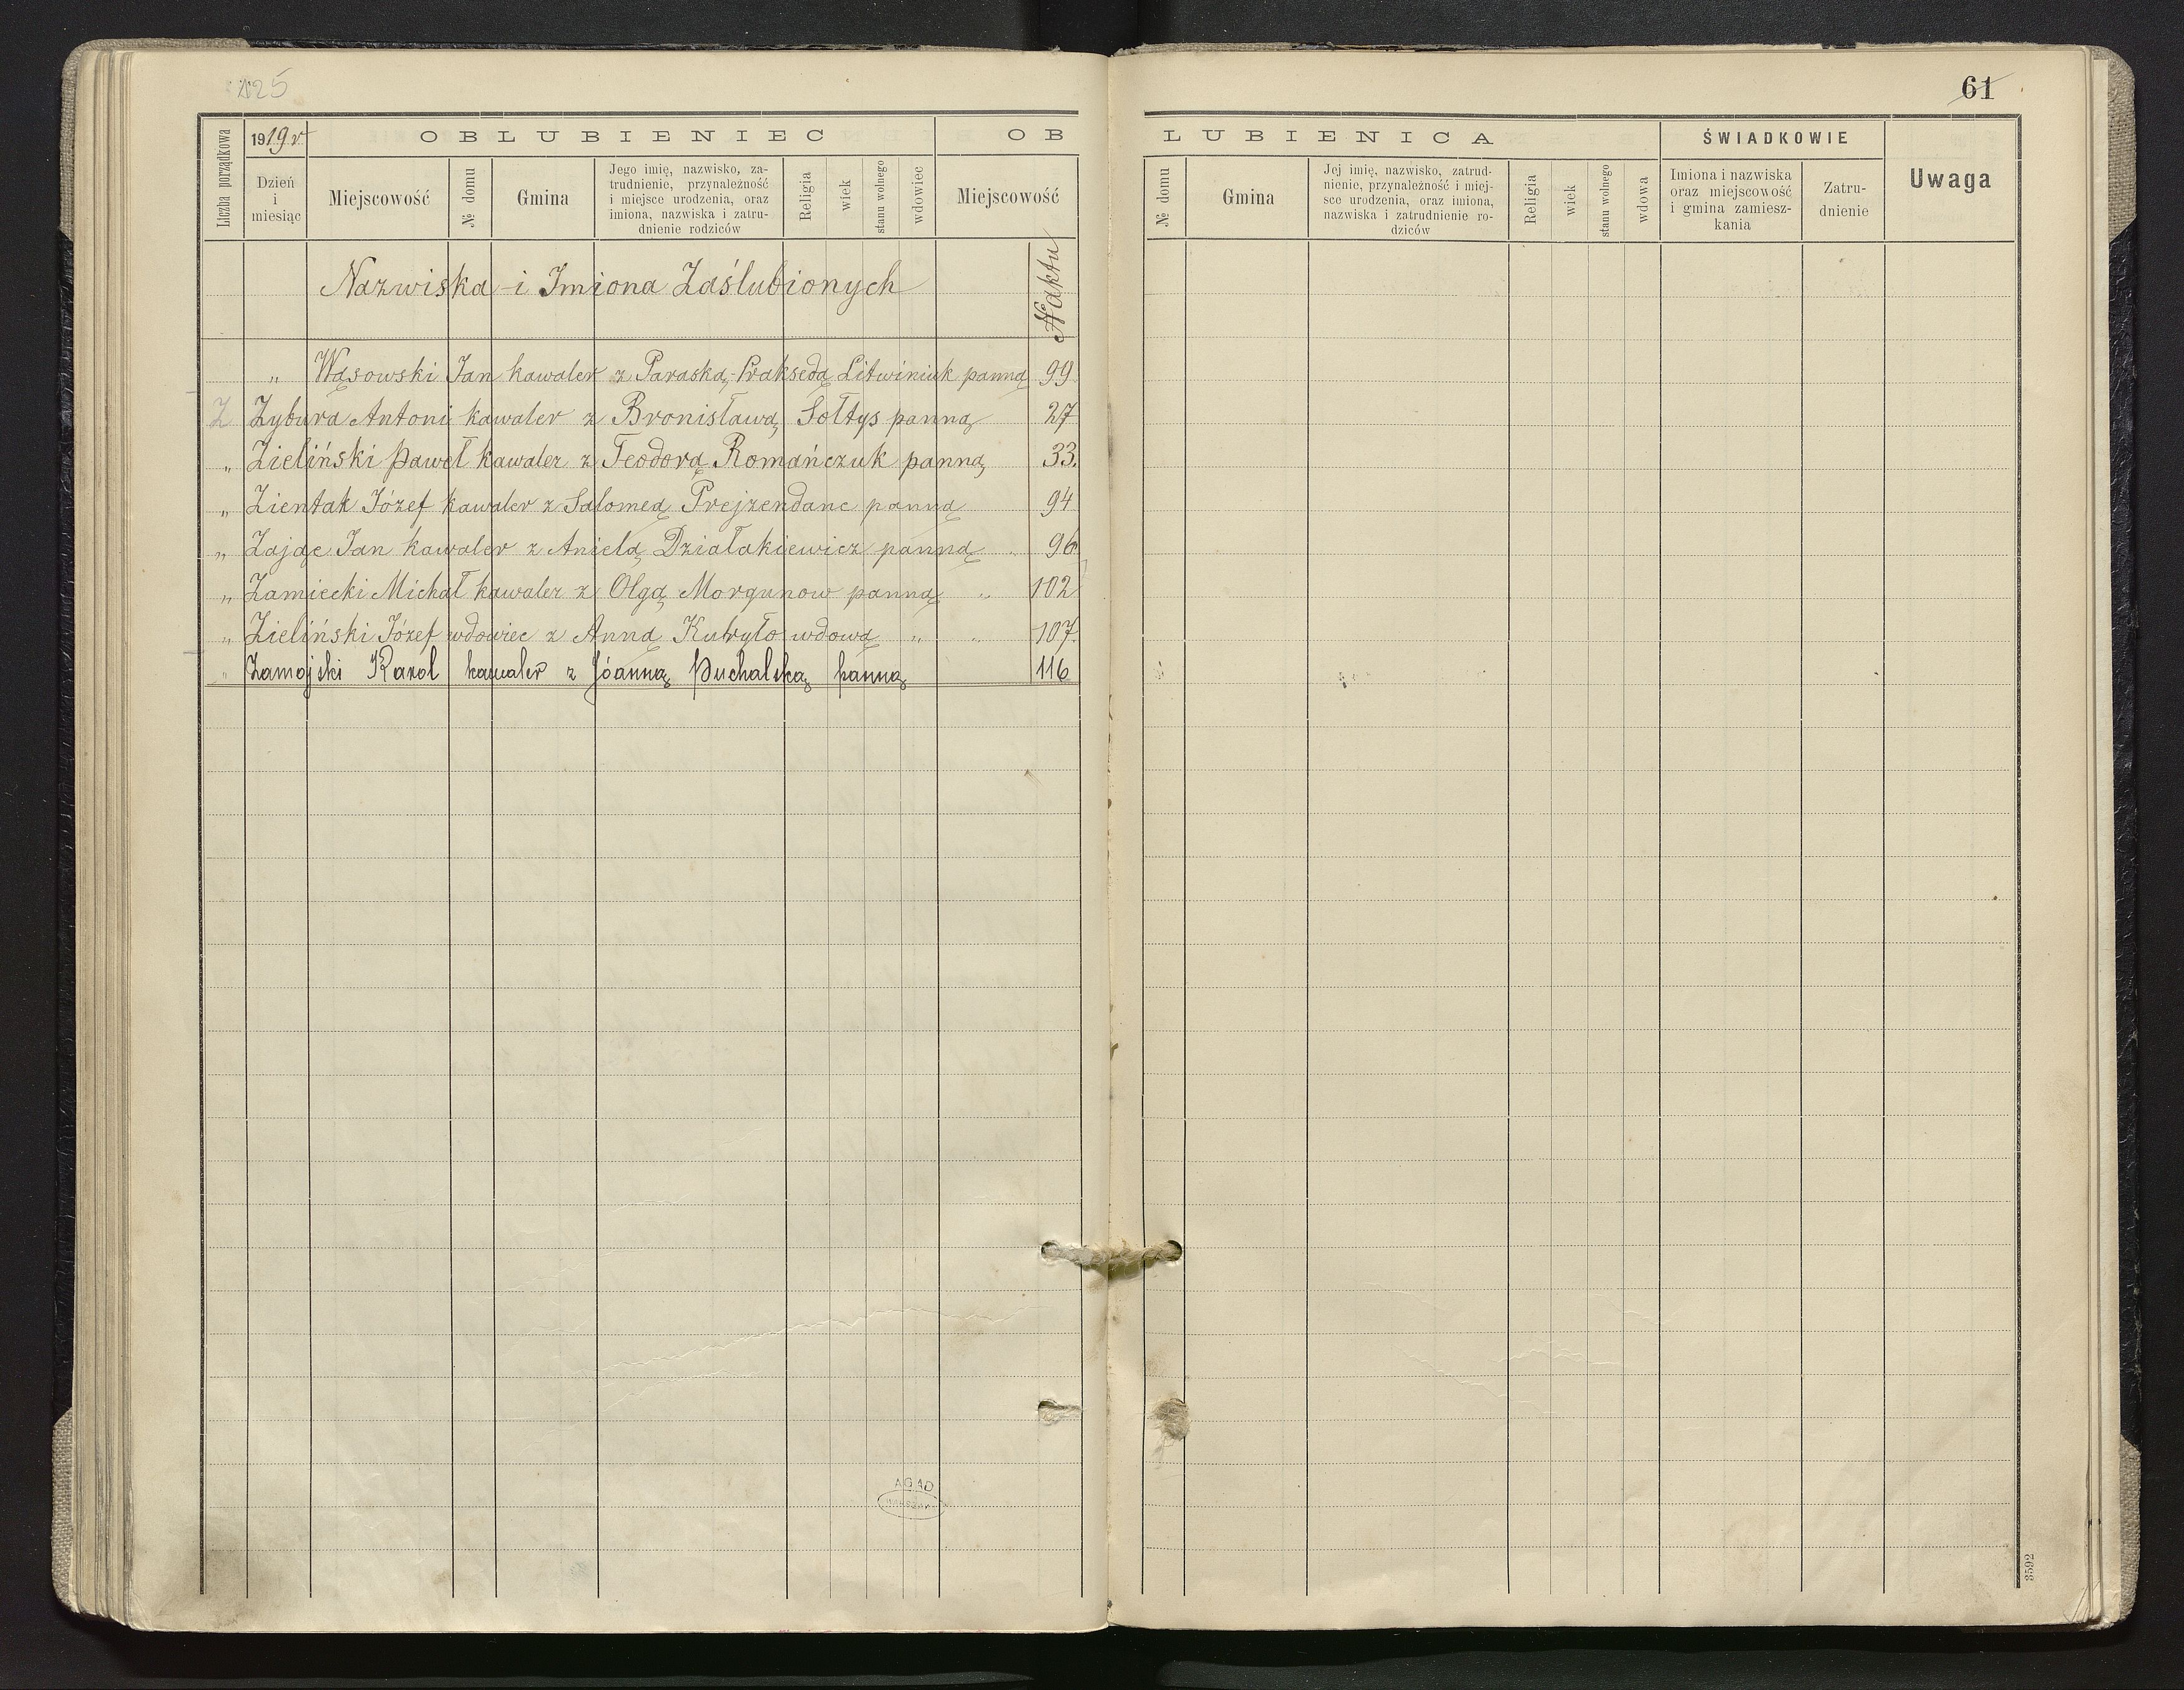 125
61
Liczba porządkowa
1919 r.
OBLUBIENIEC
OB
LUBIENICA
ŚWIADKOWIE
Uwaga
Dzień
i
miesiąc
Miejscowość
№ domu
Gmina
Jego imię, nazwisko, za-
trudnienie, przynależność
i miejsce urodzenia, oraz
imiona, nazwiska i zatru-
dnienie rodziców
Religia
wiek
stanu wolnego
wdowiec
Miejscowość
№ domu
Gmina
Jej imię, nazwisko, zatrud-
nienie, przynależność i miej-
sce urodzenia, oraz imiona,
nazwiska i zatrudnienie ro-
dziców
Religia
wiek
stanu wolnego
wdowa
Imiona i nazwiska
oraz miejscowość
i gmina zamiesz-
kania
Zatru-
dnienie
Nazwiska i Imiona Zaślubionych
№ aktu
" Wąsowski Jan kawaler z Paraską-Praksedą Litwiniuk panną 99
Z Zybura Antoni kawaler z Bronisławą Sołtys panną 27
" Zieliński Paweł kawaler z Teodorą Romańczuk panną 33.
" Zientak Józef kawaler z Salomeą Prejzendanc panną 94
" Zając Jan kawaler z Anielą Działakiewicz panną 96
" Zamiecki Michał kawaler z Olgą Morgunow panną " 102
" Zieliński Józef wdowiec z Anną Kubryło wdową " " 107.
" Zamojski Karol kawaler z Jóanną Puchalską panną 116
AGAD
WARSZAWA
3592